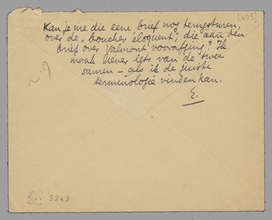 [403]
Kan je me die eene brief nog terugsturen,
over de "Doucher éloquent", die aan den
brief over Valmont voorafging? Ik
maak liever iets van de twee
samen – als ik de juiste
terminologie vinden kan.
E.
5249